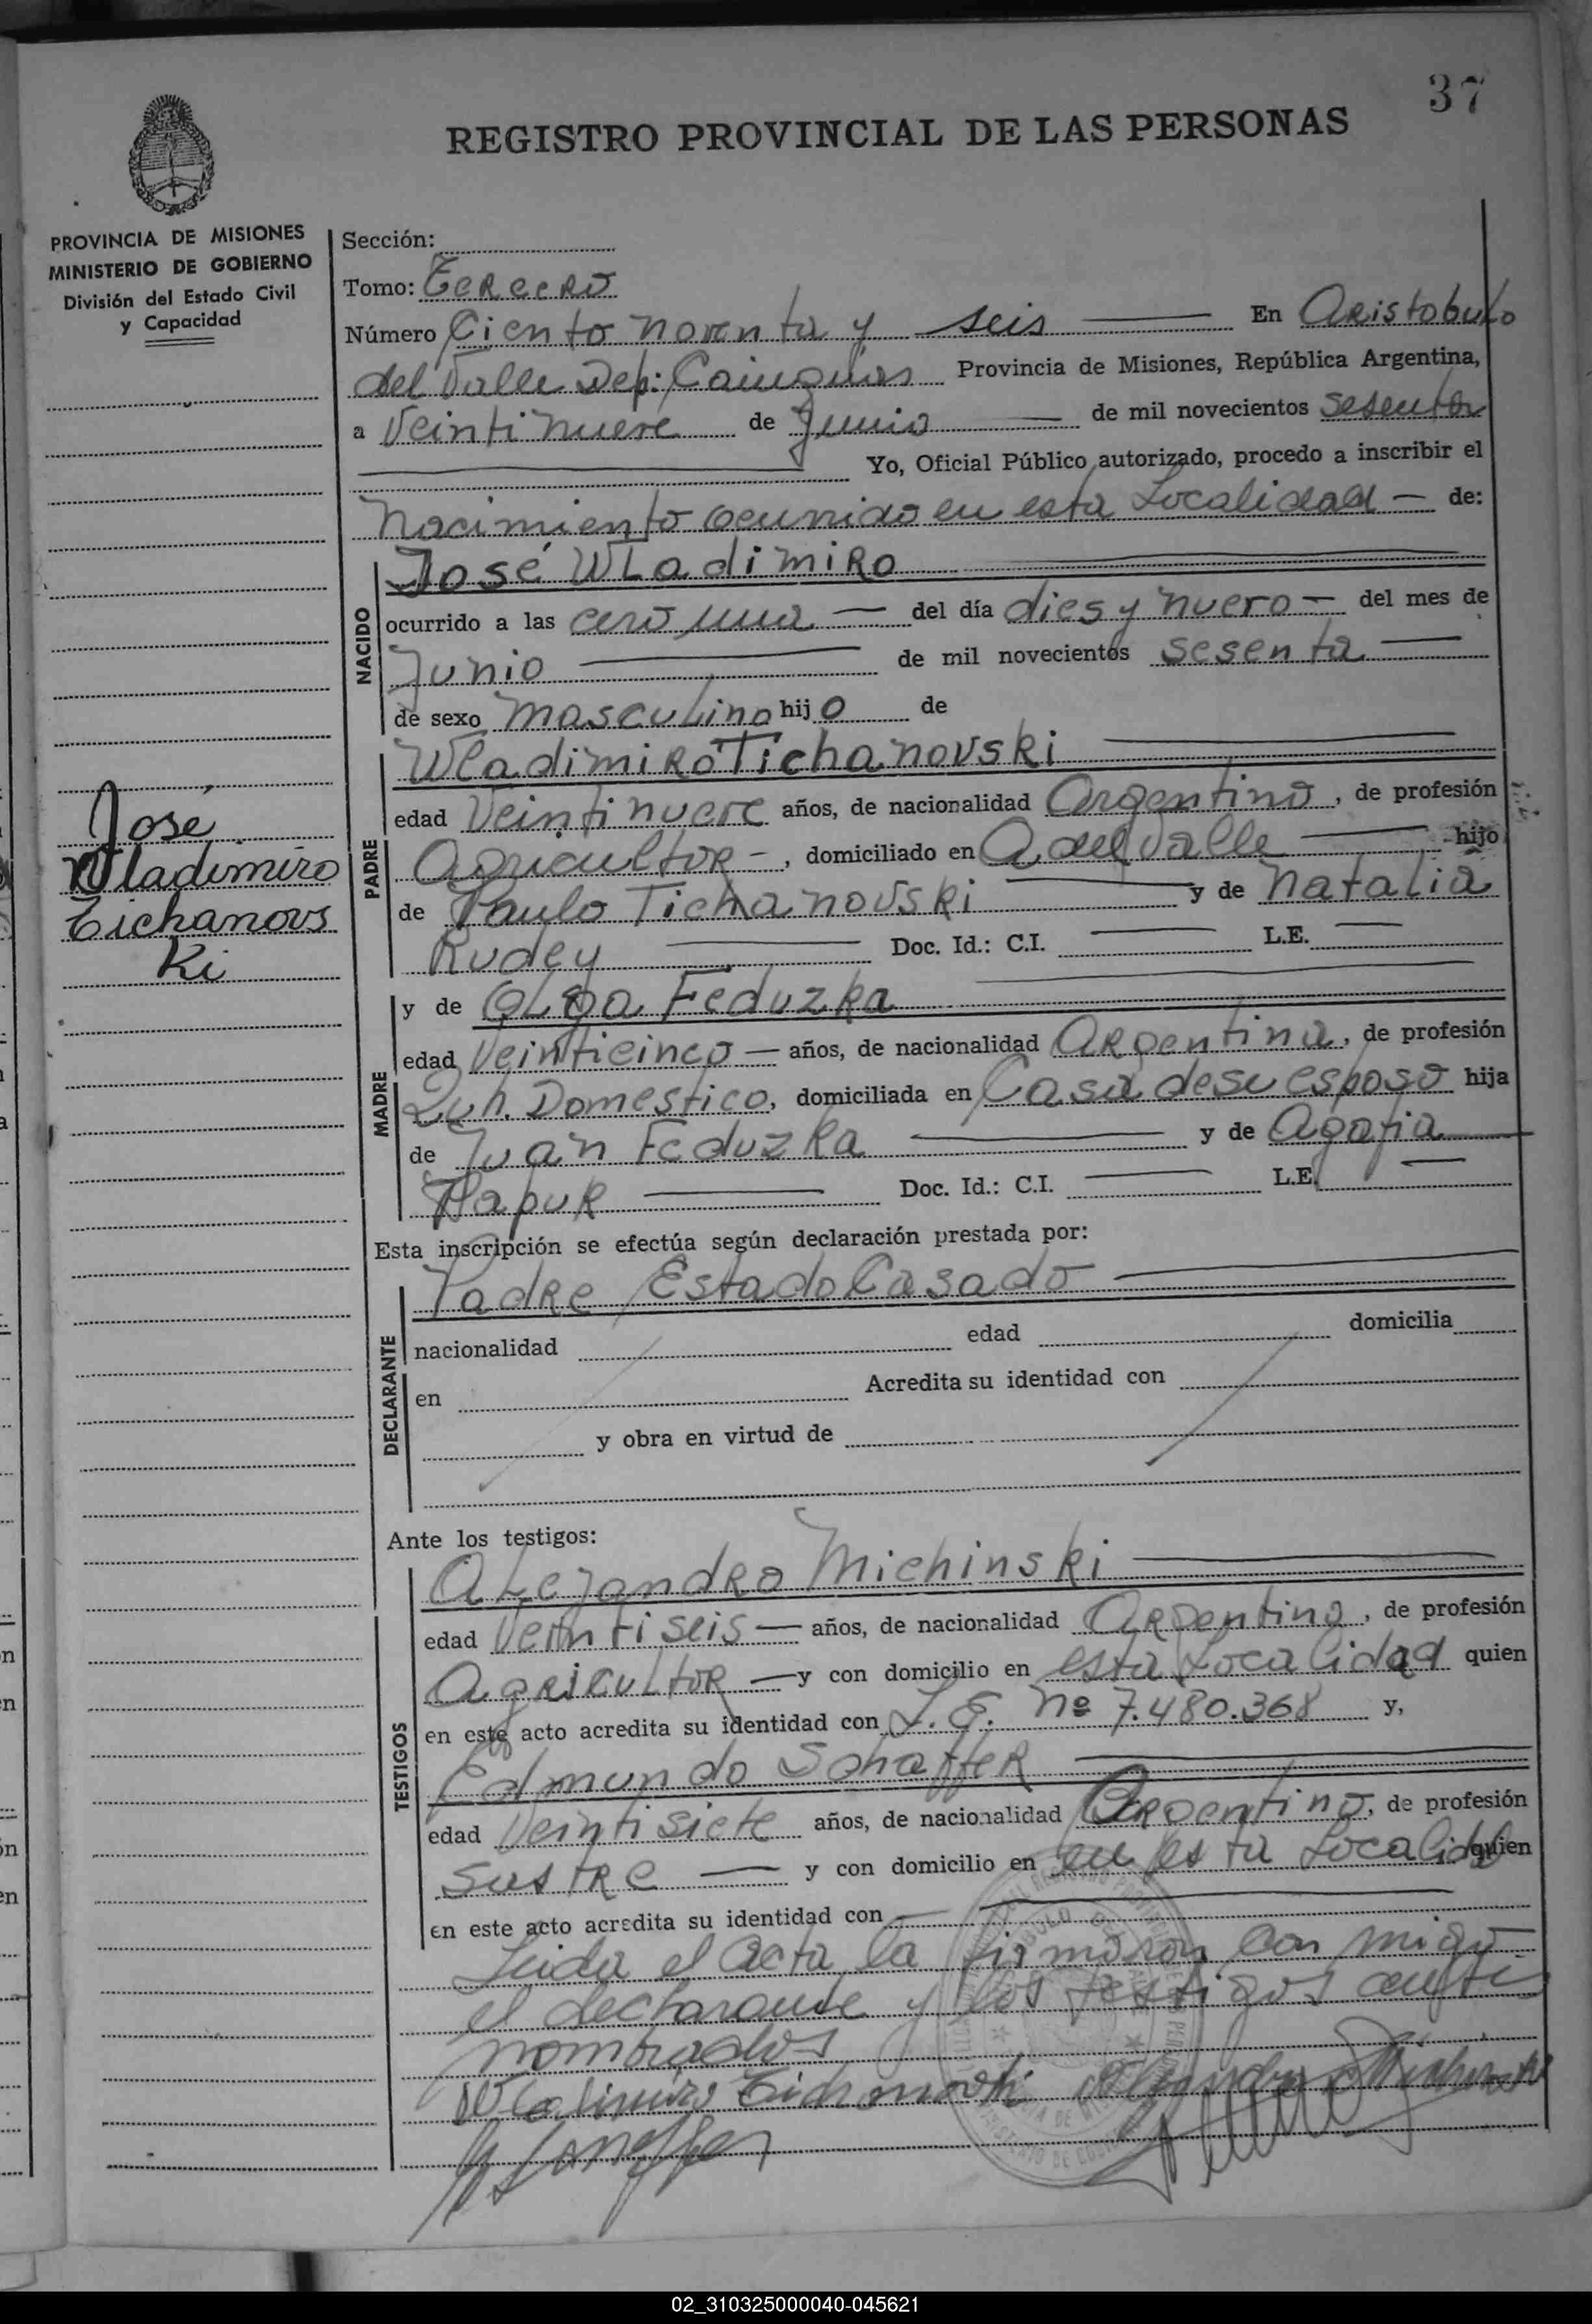 37
REGISTRO PROVINCIAL DE LAS PERSONAS
PROVINCIA DE MISIONES
MINISTERIO DE GOBIERNO
División del Estado Civil
y Capacidad
José
Wladimiro
Tichanovs
ki
Sección:
Tomo: Tercero
Número Ciento noventa y seis En Aristobulo
del Valle Dep: Cainguás Provincia de Misiones, República Argentina,
a Veintinueve de Junio de mil novecientos sesenta
Yo, Oficial Público autorizado, procedo a inscribir el
Nacimiento ocurrido en esta Localidad de:
NACIDO
José Wladimiro
ocurrido a las cero una del día dies y nuevo del mes de
Junio de mil novecientos sesenta
de sexo masculino hijo de
PADRE
Wladimiro Tichanovski
edad Veintinueve años, de nacionalidad Argentino, de profesión
Agricultor, domiciliado en A. del Valle hijo
de Paulo Tichanovski y de Natalia
Rudey Doc. Id.: C.I. L.E.
MADRE
y de Olga Feduzka
edad Veinticinco años, de nacionalidad Argentina, de profesión
Quh. Domestico, domiciliada en Casa de su esposo hija
de Juan Feduzka y de Agafia
Hapuk Doc. Id.: C.I. L.E.
Esta inscripción se efectúa según declaración prestada por:
DECLARANTE
Padre Estado Casado
nacionalidad edad domicilia
en Acredita su identidad con
y obra en virtud de
Ante los testigos:
TESTIGOS
Alejandro Michinski
edad Veintiseis años, de nacionalidad Argentino, de profesión
Agricultor y con domicilio en esta Localidad quien
en este acto acredita su identidad con L.E. Nº 7.480.368 y,
Edmundo Schaffer
edad Veintisiete años, de nacionalidad Argentino, de profesión
Sastre y con domicilio en en esta Localidad quien
en este acto acredita su identidad con
Leida el Acta la firmaron con migo
el declarante y los testigos ante
nombrados
Wladimiro Tichanovski Alejandro Michinski
02_310325000040-045621